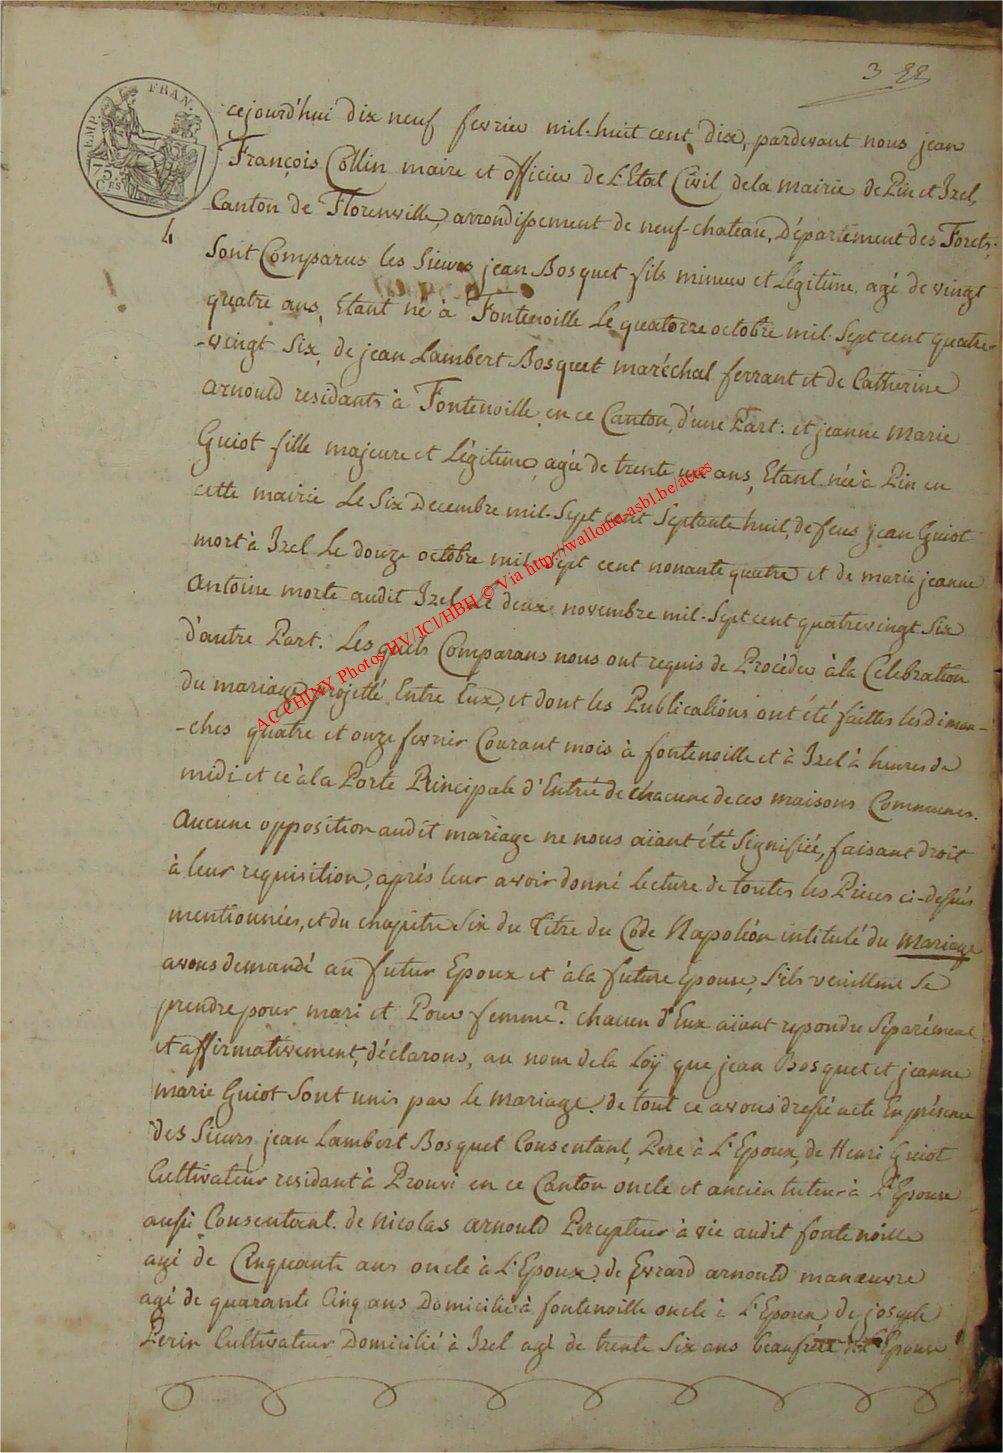 3 22
EMP. FRAN.
75.
CES
4
cejourd'hui dix neuf fevrier mil-huit cent dix, pardevant nous jean
François Collin maire et officier de L'Etat Civil dela mairie de Pin et Izel,
Canton de Florenville, arrondissement de neuf-chateau, Département des Forets,
Sont Comparus les Sieurs jean Bosquet fils mineur et Légitime, agé de vingt
quatre ans, Etant né à Fontenoille Le quatorze octobre mil-Sept cent quatre-
-vingt Six, de jean Lambert Bosquet maréchal ferrant et de Catherine
arnould residants à Fontenoille en ce Canton, d'une Part: et jeanne Marie
Guiot fille majeure et Légitime, agée de trente un ans, Etant née à Pin en
cette mairie Le Six Decembre mil-Sept cent Septante huit, de feus jean Guiot
mort à Izel Le douze octobre mil-Sept cent nonante quatre et de marie jeanne
Antoine morte audit Izel Le deux novembre mil-Sept cent quatrevingt Six
d'autre Part. Lesquels Comparans nous ont requis de Procéder à la Célébration
du mariage projetté Entre Eux, et dont les Publications ont été faittes les diman-
-ches quatre et onze fevrier Courant mois à fontenoille et à Izel à heures de
midi et ce à la Porte Principale d'Entrée de chacune de ces maisons Communes.
Aucune opposition audit mariage ne nous aiant été Signifiée, faisant droit
à leur requisition, après leur avoir donné Lecture de toutes les Pieces ci-dessus
mentionnées, et du chapitre Six du Titre du Code Napoléon intitulé du Mariage
avons demandé au futur Epoux et à la future Epouse, S'ils veuillent Se
prendre pour mari et Pour femme? chacun d'Eux aiant repondu Separément
et affirmativement, déclarons, au nom dela Loÿ que jean Bosquet et jeanne
marie Guiot Sont unis par Le Mariage. de tout ce avons dressé acte En présence
des Sieurs jean Lambert Bosquet Consentant, Pere à L'Epoux, de Henri Guiot
Cultivateur residant à Prouvi en ce Canton oncle et ancien tuteur à L'Epouse
aussi Consentant. de Nicolas arnould Percepteur à vie audit fontenoille
agé de Cinquante ans oncle à L'Epoux. de Evrard arnould manœuvre
agé de quarante Cinq ans Domicilié à fontenoille oncle à L'Epoux, de joseph
Perin Cultivateur Domicilié à Izel agé de trente Six ans beaufrère L'Epouse
AC CHINY Photos HV/JCl/HBH © Via http://wallonia-asbl.be/actes